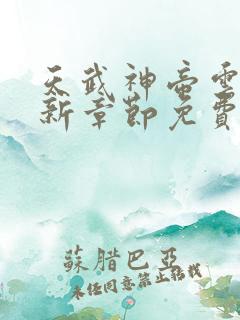 天武神帝雲
新章節免費
蘇腊巴亞
未经同意禁止转载